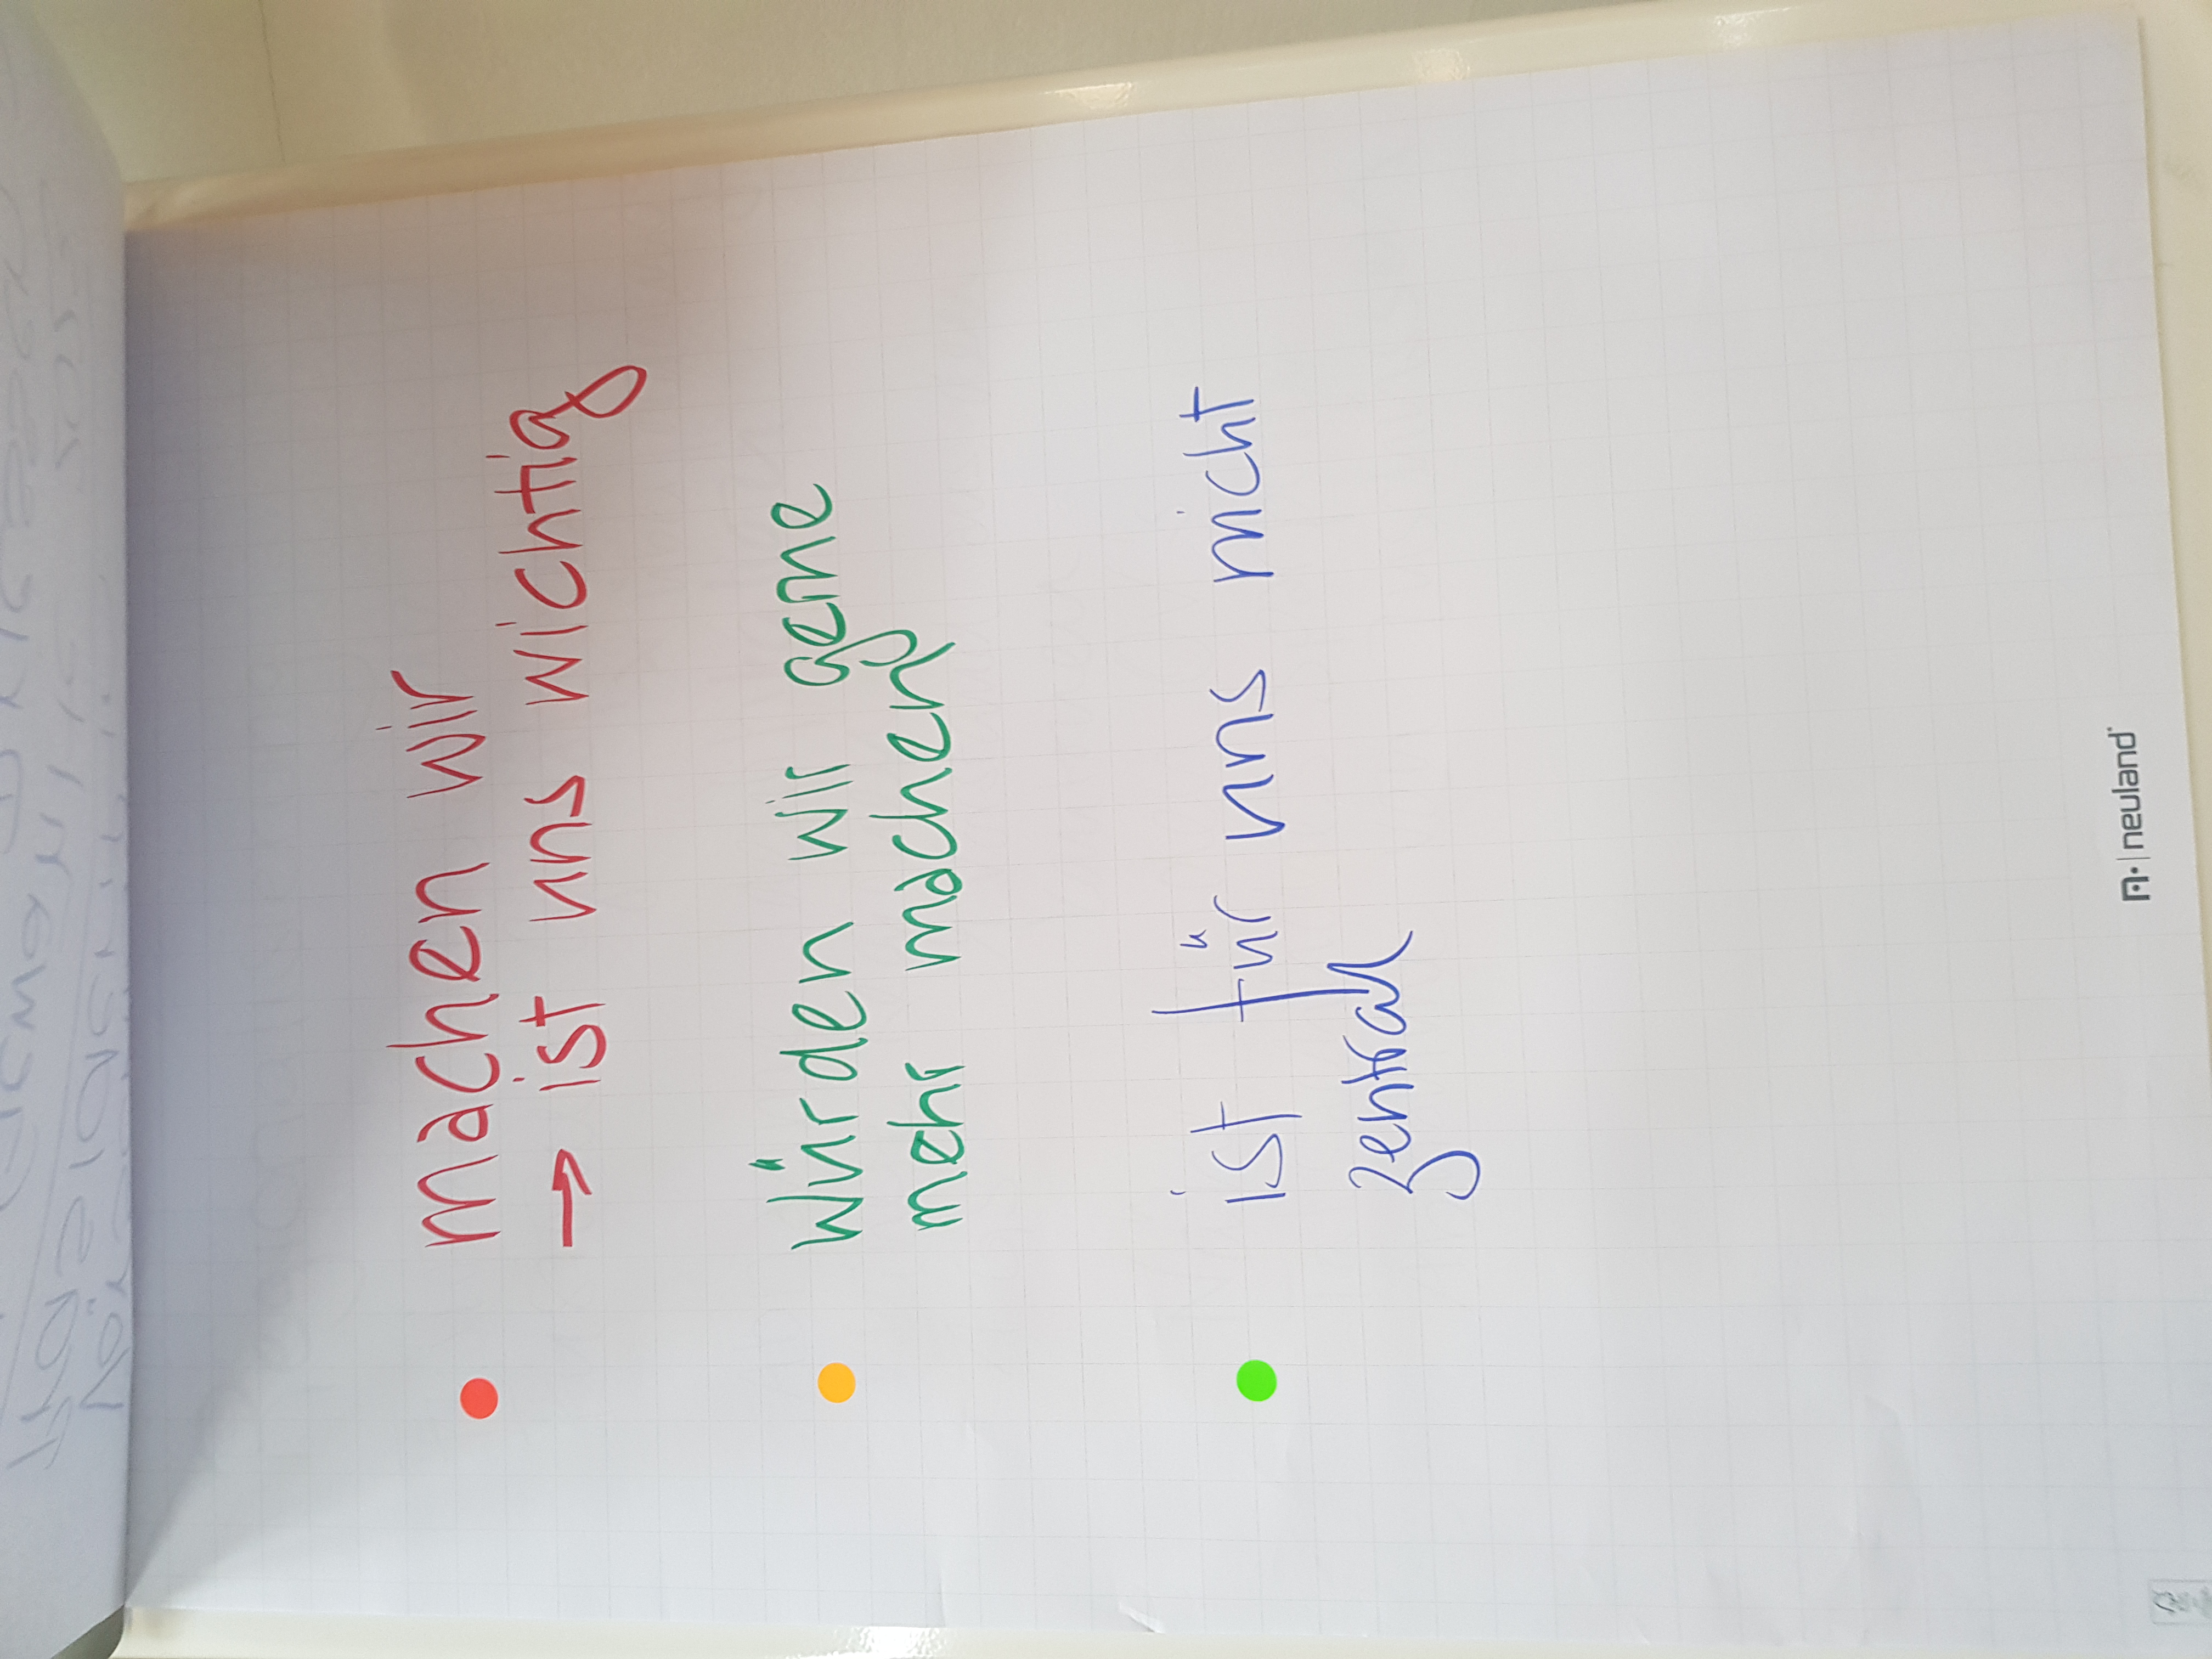 machen wir
→ ist uns wichtig
würden wir gerne
mehr machen
ist für uns nicht
zentral
neuland